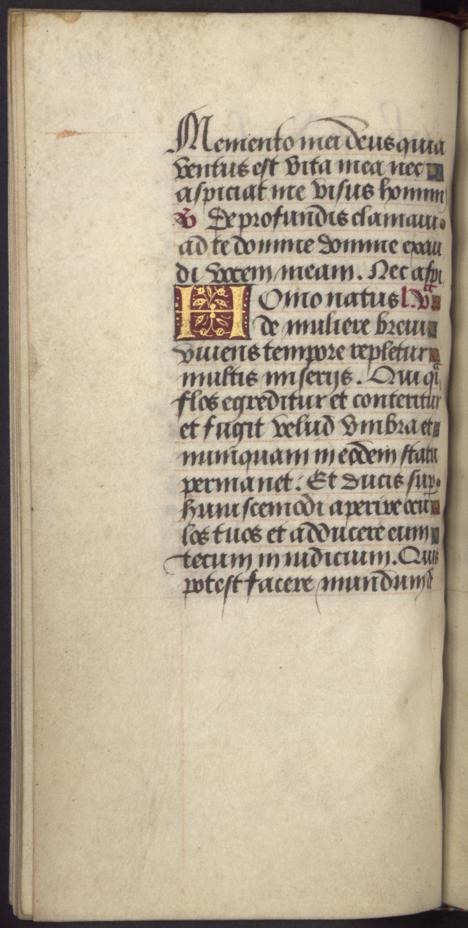 Memento mei deus quia
ventus est vita mea nec
aspiciat me visus homini
V De profundis clamaui
ad te domine domine exau
di vocem meam. Nec aspi
Homo natus
de muliere breui
viuens tempore repletur
multis miserijs. Qui qi
flos egreditur et conteritur
et fugit velud vmbra et
numquam in eodem statu
permanet. Et ducis sup
huiuscemodi aperire ocu
los tuos et adducere eum
tecum in iudicium. Quis
potest facere mundum d